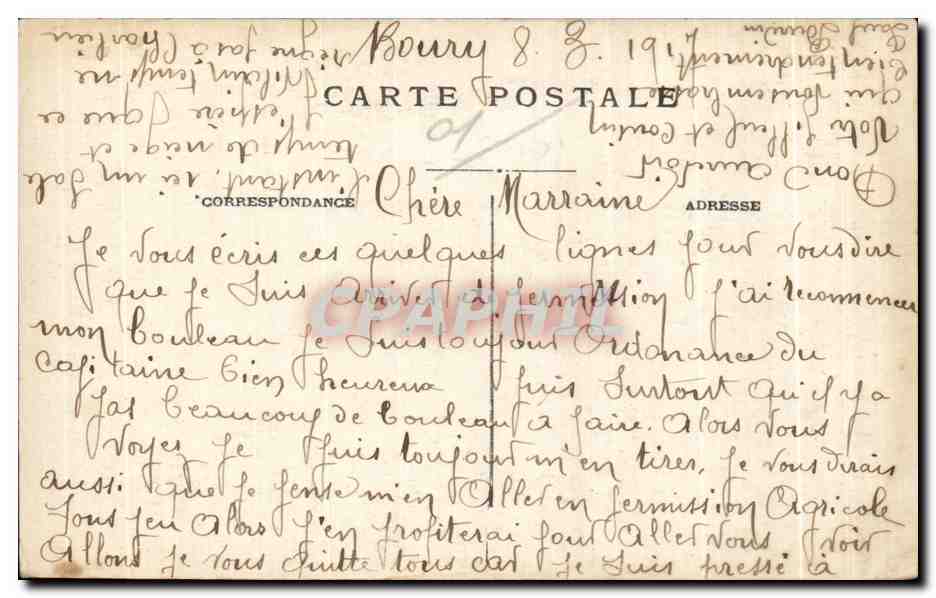 Boury 8. 8. 1917
CARTE POSTALE
CORRESPONDANCE
ADRESSE
Chère Marraine
Je vous écris ces quelques lignes pour vous dire
que je suis arivér de permission j'ai recommencer
mon bouleau je suis toujour Ordonance du
Capitaine bien heureux puis surtout qu'il y a
pas beaucoup de bouleau a faire. Alors vous
voyer je puis toujour m'en tirer, je vous dirais
aussi que je pense m'en Aller en permission Agricole
sous peu Alors j'en profiterai pour Aller vous voir
Allons je vous quitte tous car je suis pressé à
l'instant, ici un sale
temps de neige et
j'espère que ce
vilain temps ne
règne pas à Chartier
Donc aurevoir
Votre filleul et Cousin
qui vous embrasse
bien tendrement
CPAPHIL